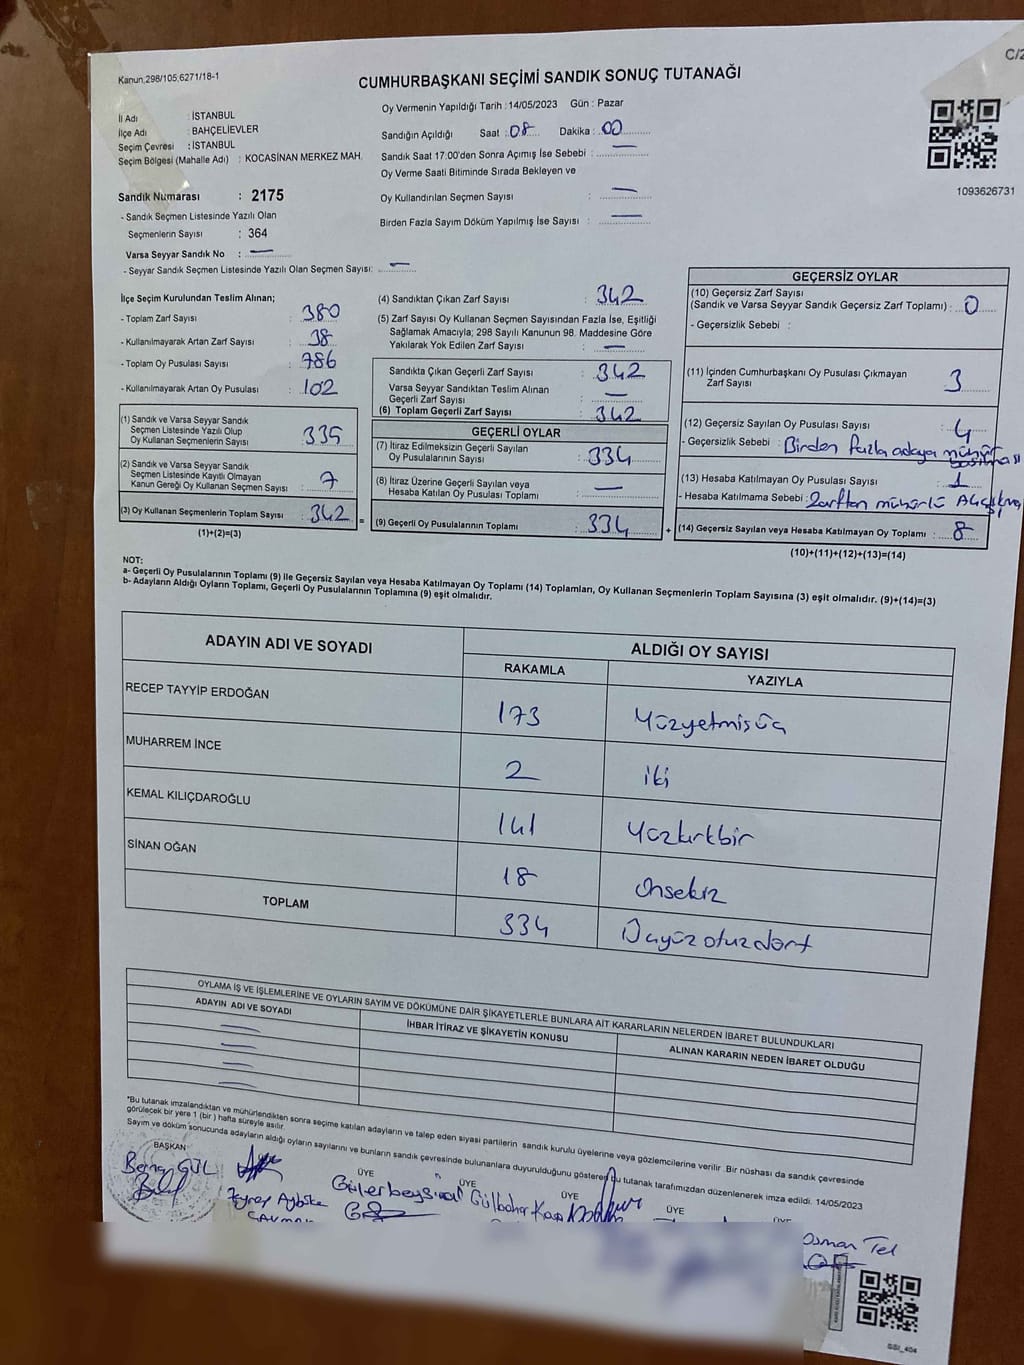 C/2
Kanun,298/105,6271/18-1
CUMHURBAŞKANI SEÇİMİ SANDIK SONUÇ TUTANAĞI
İl Adı : İSTANBUL
İlçe Adı : BAHÇELİEVLER
Seçim Çevresi : İSTANBUL
Seçim Bölgesi (Mahalle Adı) : KOCASİNAN MERKEZ MAH.
Oy Vermenin Yapıldığı Tarih : 14/05/2023 Gün : Pazar
Sandığın Açıldığı Saat : 08 Dakika : 00
Sandık Saat 17:00'den Sonra Açımış İse Sebebi : —
Oy Verme Saati Bitiminde Sırada Bekleyen ve
Oy Kullandırılan Seçmen Sayısı : —
Birden Fazla Sayım Döküm Yapılmış İse Sayısı : —
1093626731
Sandık Numarası : 2175
- Sandık Seçmen Listesinde Yazılı Olan
Seçmenlerin Sayısı : 364
Varsa Seyyar Sandık No : —
- Seyyar Sandık Seçmen Listesinde Yazılı Olan Seçmen Sayısı: —
İlçe Seçim Kurulundan Teslim Alınan;
- Toplam Zarf Sayısı : 380
- Kullanılmayarak Artan Zarf Sayısı : 38
- Toplam Oy Pusulası Sayısı : 786
- Kullanılmayarak Artan Oy Pusulası : 102
(1) Sandık ve Varsa Seyyar Sandık
Seçmen Listesinde Yazılı Olup
Oy Kullanan Seçmenlerin Sayısı : 335
(2) Sandık ve Varsa Seyyar Sandık
Seçmen Listesinde Kayıtlı Olmayan
Kanun Gereği Oy Kullanan Seçmen Sayısı : 7
(3) Oy Kullanan Seçmenlerin Toplam Sayısı : 342 =
(1)+(2)=(3)
(4) Sandıktan Çıkan Zarf Sayısı : 342
(5) Zarf Sayısı Oy Kullanan Seçmen Sayısından Fazla İse, Eşitliği
Sağlamak Amacıyla; 298 Sayılı Kanunun 98. Maddesine Göre
Yakılarak Yok Edilen Zarf Sayısı : —
Sandıkta Çıkan Geçerli Zarf Sayısı : 342
Varsa Seyyar Sandıktan Teslim Alınan
Geçerli Zarf Sayısı : —
(6) Toplam Geçerli Zarf Sayısı : 342
GEÇERLİ OYLAR
(7) İtiraz Edilmeksizin Geçerli Sayılan
Oy Pusulalarının Sayısı : 334
(8) İtiraz Üzerine Geçerli Sayılan veya
Hesaba Katılan Oy Pusulası Toplamı : —
(9) Geçerli Oy Pusulalarının Toplamı : 334 +
GEÇERSİZ OYLAR
(10) Geçersiz Zarf Sayısı
(Sandık ve Varsa Seyyar Sandık Geçersiz Zarf Toplamı) : 0
- Geçersizlik Sebebi :
(11) İçinden Cumhurbaşkanı Oy Pusulası Çıkmayan
Zarf Sayısı 3
(12) Geçersiz Sayılan Oy Pusulası Sayısı : 4
- Geçersizlik Sebebi : Birden fazla adaya mühür
basılması
(13) Hesaba Katılmayan Oy Pusulası Sayısı : 1
- Hesaba Katılmama Sebebi : Zarftan mühürlü
(14) Geçersiz Sayılan veya Hesaba Katılmayan Oy Toplamı : 8
(10)+(11)+(12)+(13)=(14)
NOT:
a- Geçerli Oy Pusulalarının Toplamı (9) ile Geçersiz Sayılan veya Hesaba Katılmayan Oy Toplamı (14) Toplamları, Oy Kullanan Seçmenlerin Toplam Sayısına (3) eşit olmalıdır. (9)+(14)=(3)
b- Adayların Aldığı Oyların Toplamı, Geçerli Oy Pusulalarının Toplamına (9) eşit olmalıdır.
ADAYIN ADI VE SOYADI ALDIĞI OY SAYISI
RAKAMLA YAZIYLA
RECEP TAYYİP ERDOĞAN 173 Yüzyetmişüç
MUHARREM İNCE 2 iki
KEMAL KILIÇDAROĞLU 141 Yüzkırkbir
SİNAN OĞAN 18 Onsekiz
TOPLAM 334 Üçyüzotuzdört
OYLAMA İŞ VE İŞLEMLERİNE VE OYLARIN SAYIM VE DÖKÜMÜNE DAİR ŞİKAYETLERLE BUNLARA AİT KARARLARIN NELERDEN İBARET BULUNDUKLARI
ADAYIN ADI VE SOYADI İHBAR İTİRAZ VE ŞİKAYETİN KONUSU ALINAN KARARIN NEDEN İBARET OLDUĞU
*Bu tutanak imzalandıktan ve mühürlendikten sonra seçime katılan adayların ve talep eden siyasi partilerin sandık kurulu üyelerine veya gözlemcilerine verilir. Bir nüshası da sandık çevresinde
görülecek bir yere 1 (bir ) hafta süreyle asılır.
Sayım ve döküm sonucunda adayların aldığı oyların sayılarını ve bunların sandık çevresinde bulunanlara duyurulduğunu gösteren bu tutanak tarafımızdan düzenlenerek imza edildi. 14/05/2023
BAŞKAN ÜYE ÜYE ÜYE ÜYE
GÜL
Zeynep
Osman Tel
SSI_404